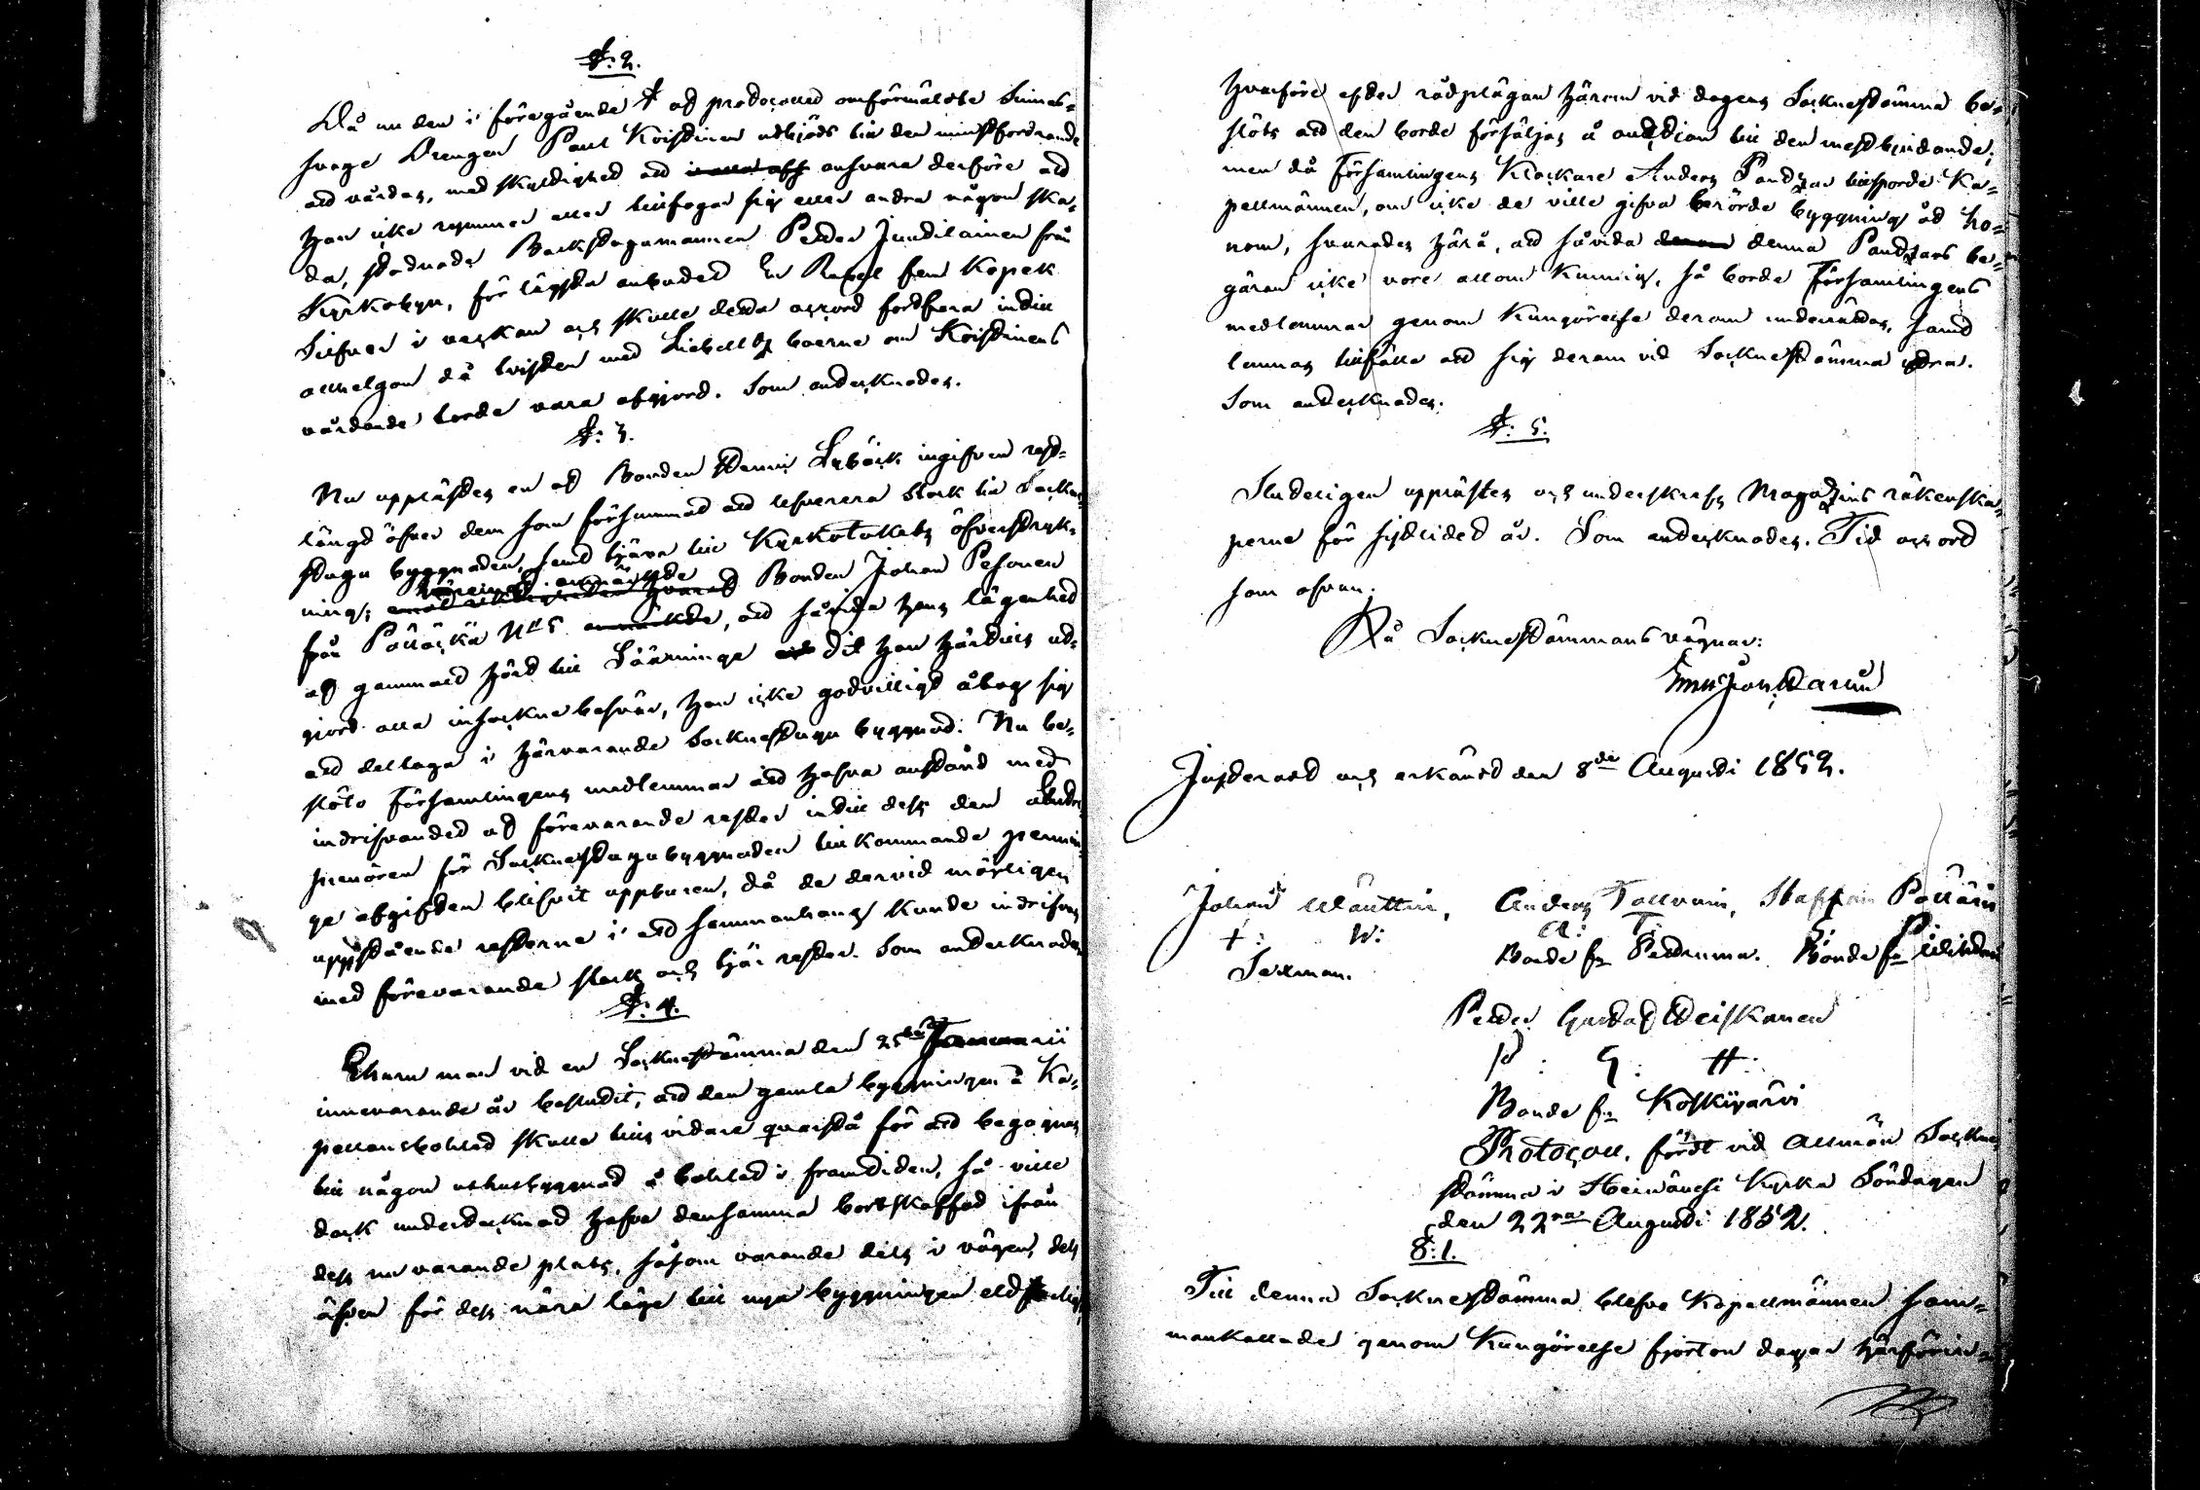 §: 2.
Då nu den i föregående § af protocollet omförmälde Sinnes=
svage Drengen Paul Koistinen utbjöds till den minstfordrande
att vårdas, med skyldighet att ansvara derföre att
han icke rymmer eller tillfogar sig eller andra någon ska=
da, stadnade Backstugumannen Petter Juutilainen från
Kyrkobyn, för lägsta anbudet En Rubel fem Kopek
Silfver i veckan och skulle detta accord fortfara intill
allhelgon då tvisten med Libelits boerne om Koistinens
vårdande torde vara afgjord. Som antecknades.
§: 3.
Nu upplästes en af Bonden Lyböck ingifven rest=
längd öfver dem som försummat att leverera stock till Sockne
stugu byggnaden, samt tjära till Kyrkotakets öfverstryk=
ning; härvid anmärkte Bonden Johan Pesonen
från Pölläkkä N:o 5, att såvida hans lägenhet
af gammalt hört till Säärninge dit han härtills ut=
gjort alla insocknebesvär, han icke godvilligt åtog sig
att deltaga i härvarande Socknestugu byggnad. Nu be=
slöto Församlingens medlemmar att hafva anstånd med
indrifvandet af förevarande rester intill dess den
för Socknestugubyggnaden tillkommande pennin=
ge afgiften blifvit uppburen, då de dervid möjligen
uppstående resterne i ett sammanhang kunde indrifvas
med förevarande stock och tjär rester. Som antecknades
§: 4.
Ehuru man vid en Socknestämma den 25te Januarii
innevarande år beslutit, att den gamla byggningen å Ka=
pellansbohlet skulle tills vidare qvarstå för att begagnas
till någon uthusbyggnad å bohlet i framtiden, så ville
dock undertecknad hafva densamma bortskaffad ifrån
dess nu varande plats, såsom varande dels i vägen, dels
äfven för dess nära läge till nya byggningen eldfarlig,
hvarföre efter rådplägan härom vid dagens Socknestämma be=
slöts att den borde försäljas å auction till den mestbjudande;
men då Församlingens Klockare Anders Pandzar tillsporde Ka=
pellmännen, om icke de ville gifva berörde byggning åt ho=
nom, svarades härå, att såvida denna Pandzars be=
gäran icke vore allom kunnig, så borde Församlingens
medlemmar genom Kungörelse derom underrättas, samt
lemnas tillfälle att sig derom vid Socknestämma yttra.
Som antecknades.
§: 5.
Sluteligen upplästes och underskrefs Magazins räkenska=
perne för sistlidet år. Som antecknades. Tid och ord
som ofvan;
På Socknestämmans vägnar:
Justerat och erkändt den 8de Augusti 1852.
Johan Wänttin, Anders Tallvuin, Staffan Pöllän
+: W: A: T: S: P:
Sexman. Bonde fr. Petrumа. Bonde fr.
Petter Gustaf Heiskanen
P: G: H:
Bonde fr. Koskijärvi
Protocoll, fördt vid Allmän Sockne
stämma i Heinävesi Kyrka Söndagen
den 22ra Augusti 1852.
§: 1.
Till denna Socknestämma blefvo Kapellmännen sam=
mankallade genom Kungörelse fjorton dagar härförinnan